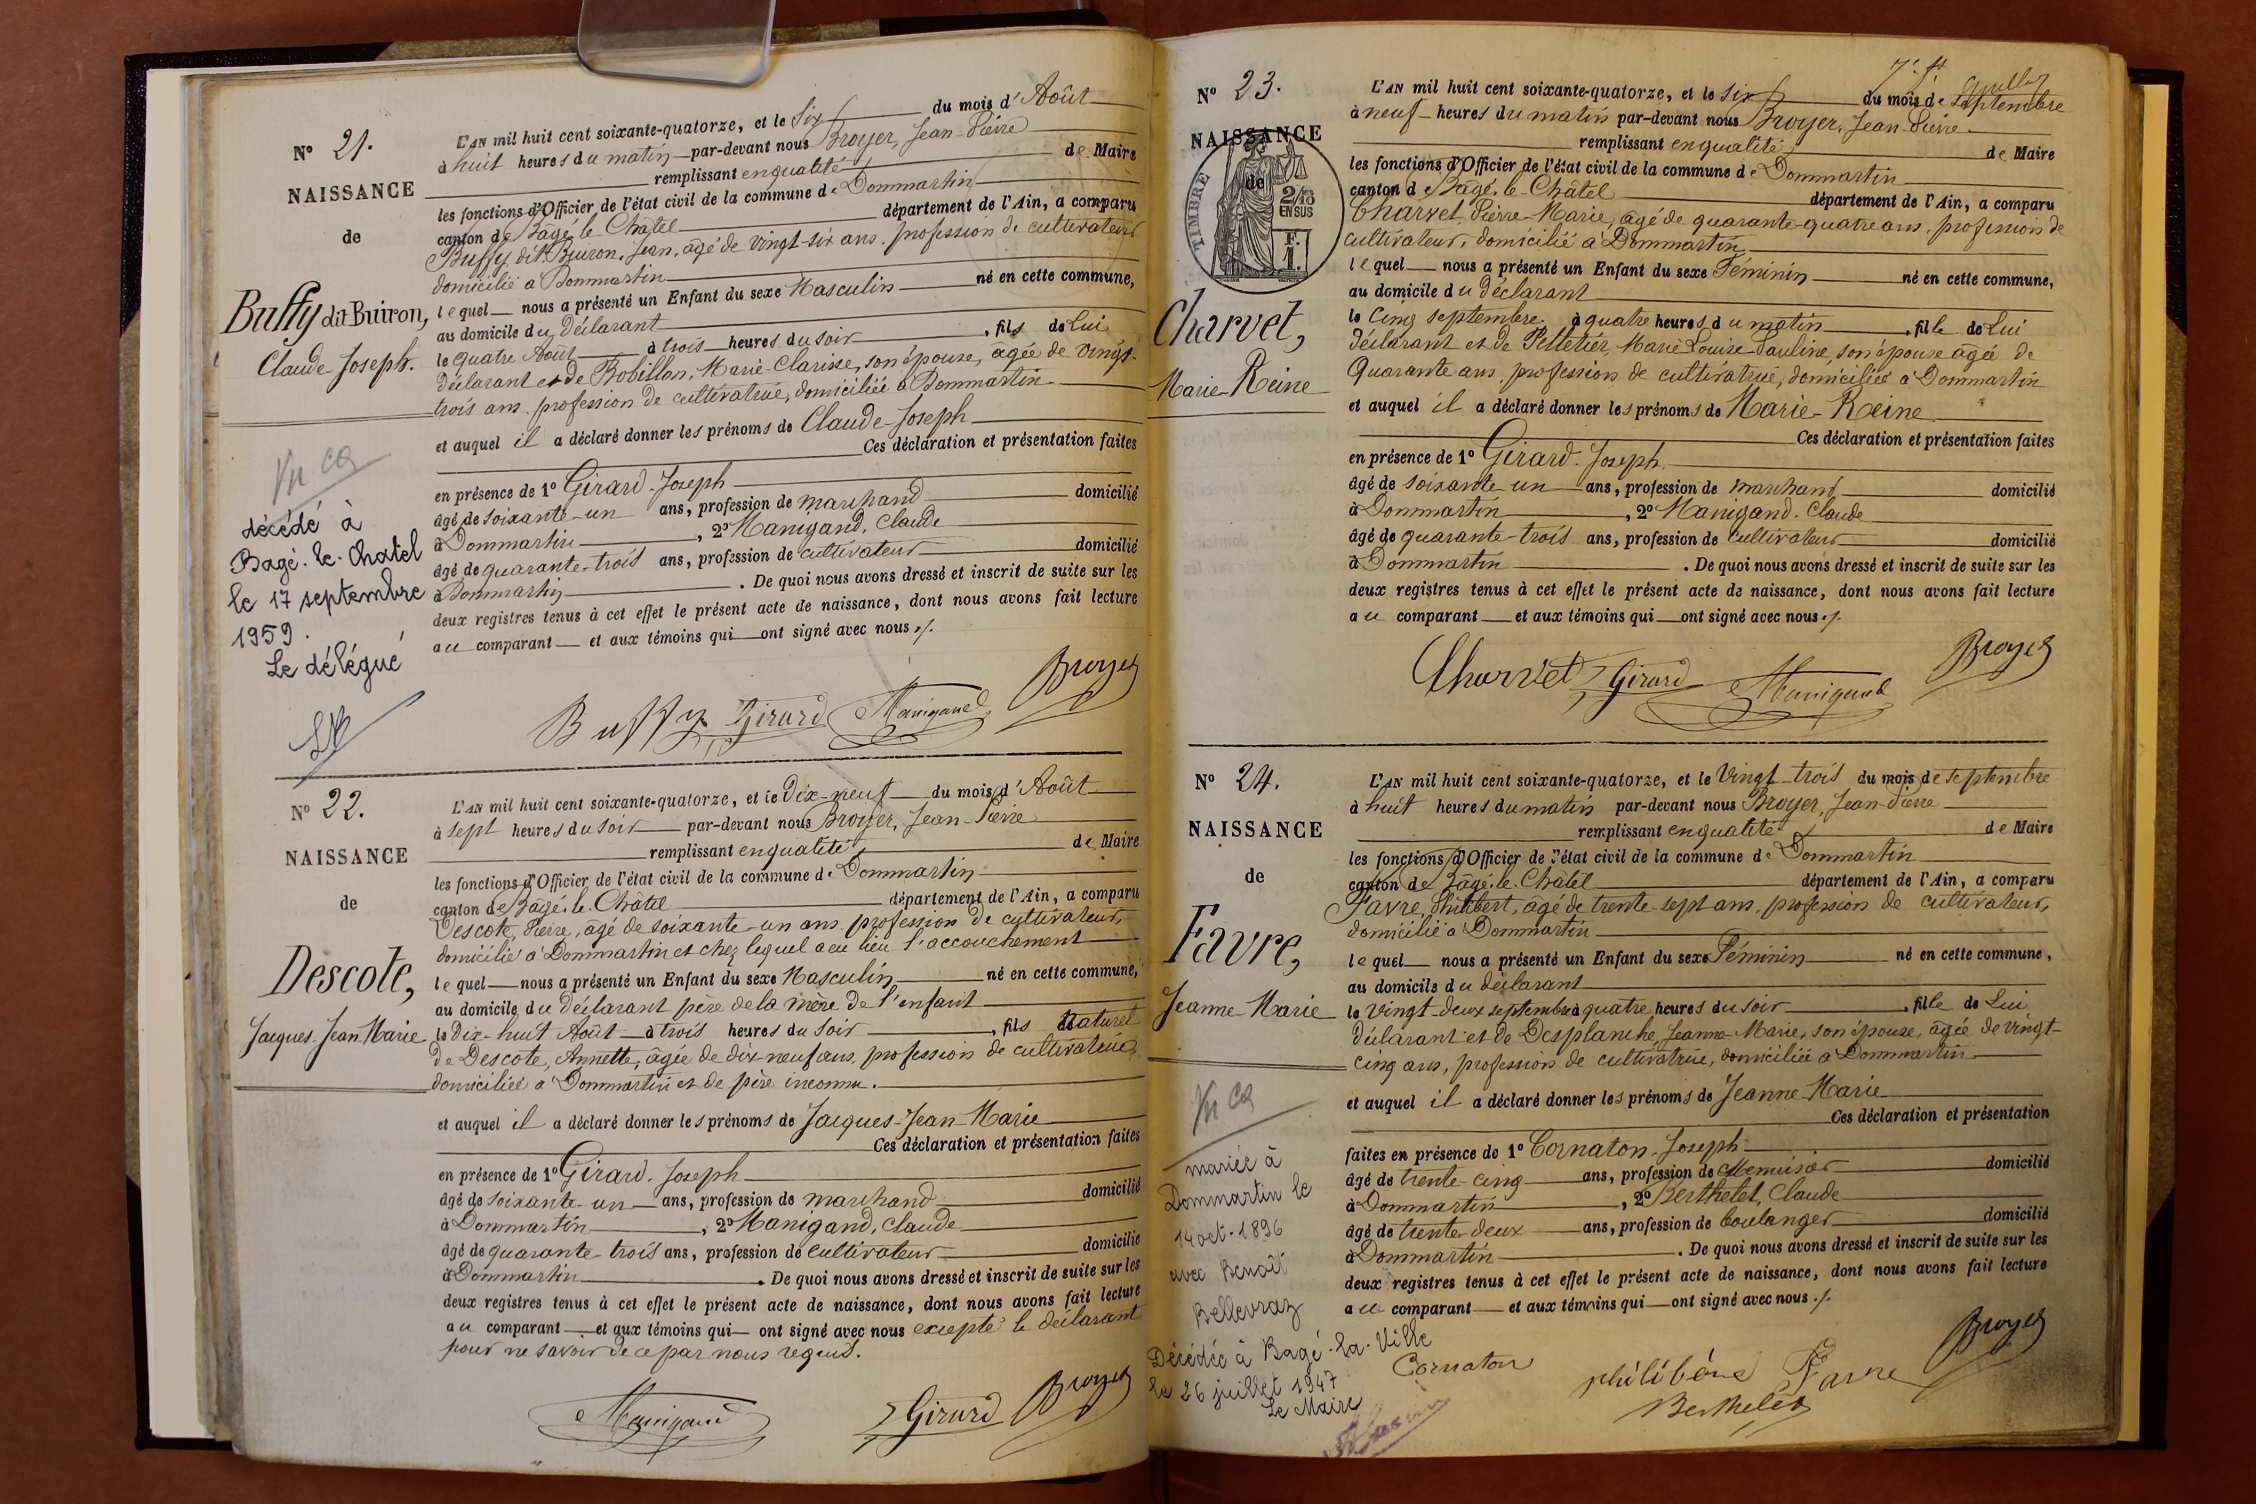 N° 21.
NAISSANCE
de
Buffy dit Buiron,
Claude-Joseph.
L'AN mil huit cent soixante-quatorze, et le Six du mois d'Août
à huit heures du matin par-devant nous Broyer, Jean-Pierre
remplissant en qualité de Maire
les fonctions d'Officier de l'état civil de la commune de Dommartin
canton de Bâgé-le-Châtel département de l'Ain, a comparu
Buffy dit Buiron, Jean, âgé de vingt-six ans, profession de cultivateur
domicilié à Dommartin
lequel nous a présenté un Enfant du sexe Masculin né en cette commune,
au domicile du déclarant
le quatre Août à trois heures du soir, fils de Lui
déclarant et de Robillon, Marie-Clarisse, son épouse, âgée de vingt-
trois ans, profession de cultivatrice, domiciliée à Dommartin
et auquel il a déclaré donner les prénoms de Claude-Joseph
Ces déclaration et présentation faites
en présence de 1° Girard, Joseph
âgé de soixante-un ans, profession de marchand domicilié
à Dommartin, 2° Manigand, Claude
âgé de quarante-trois ans, profession de cultivateur domicilié
à Dommartin. De quoi nous avons dressé et inscrit de suite sur les
deux registres tenus à cet effet le présent acte de naissance, dont nous avons fait lecture
au comparant et aux témoins qui ont signé avec nous ./.
Buffy Girard Manigand Broyer
décédé à
Bagé-le-Chatel
le 17 septembre
1959.
Le délégué
N° 22.
NAISSANCE
de
Descote,
Jacques-Jean-Marie
L'AN mil huit cent soixante-quatorze, et le Dix-neuf du mois d'Août
à sept heures du soir par-devant nous Broyer, Jean-Pierre
remplissant en qualité de Maire
les fonctions d'Officier de l'état civil de la commune de Dommartin
canton de Bâgé-le-Châtel département de l'Ain, a comparu
Descote, Pierre, âgé de soixante-un ans, profession de cultivateur,
domicilié à Dommartin et chez lequel a eu lieu l'accouchement
lequel nous a présenté un Enfant du sexe Masculin né en cette commune,
au domicile du déclarant père de la mère de l'enfant
le Dix-huit Août à trois heures du soir, fils Naturel
de Descote, Annette, âgée de dix-neuf ans, profession de cultivatrice,
domiciliée à Dommartin et de père inconnu.
et auquel il a déclaré donner les prénoms de Jacques-Jean-Marie
Ces déclaration et présentation faites
en présence de 1° Girard, Joseph
âgé de soixante-un ans, profession de marchand domicilié
à Dommartin, 2° Manigand, Claude
âgé de quarante-trois ans, profession de cultivateur domicilié
à Dommartin. De quoi nous avons dressé et inscrit de suite sur les
deux registres tenus à cet effet le présent acte de naissance, dont nous avons fait lecture
au comparant et aux témoins qui ont signé avec nous excepté le déclarant
pour ne savoir de ce par nous requis.
Manigand Girard Broyer
N° 23.
NAISSANCE
de
TIMBRE
2/10
EN SUS
F.
1.
Charvet,
Marie-Reine
L'AN mil huit cent soixante-quatorze, et le six du mois de septembre
à neuf heures du matin par-devant nous Broyer, Jean-Pierre
remplissant en qualité de Maire
les fonctions d'Officier de l'état civil de la commune de Dommartin
canton de Bâgé-le-Châtel département de l'Ain, a comparu
Charvet Pierre-Marie, âgé de quarante-quatre ans, profession de
cultivateur, domicilié à Dommartin
lequel nous a présenté un Enfant du sexe Féminin né en cette commune,
au domicile du déclarant
le Cinq septembre à quatre heures du matin, fille de Lui
déclarant et de Pelletier, Marie Louise-Pauline, son épouse âgée de
Quarante ans, profession de cultivatrice, domiciliée à Dommartin
et auquel il a déclaré donner les prénoms de Marie-Reine
Ces déclaration et présentation faites
en présence de 1° Girard, Joseph
âgé de soixante-un ans, profession de marchand domicilié
à Dommartin, 2° Manigand, Claude
âgé de quarante-trois ans, profession de cultivateur domicilié
à Dommartin. De quoi nous avons dressé et inscrit de suite sur les
deux registres tenus à cet effet le présent acte de naissance, dont nous avons fait lecture
au comparant et aux témoins qui ont signé avec nous ./.
Charvet Girard Manigand Broyer
N° 24.
NAISSANCE
de
Favre,
Jeanne-Marie
L'AN mil huit cent soixante-quatorze, et le Vingt-trois du mois de septembre
à huit heures du matin par-devant nous Broyer, Jean-Pierre
remplissant en qualité de Maire
les fonctions d'Officier de l'état civil de la commune de Dommartin
canton de Bâgé-le-Châtel département de l'Ain, a comparu
Favre, Philibert, âgé de trente-sept ans, profession de cultivateur,
domicilié à Dommartin
lequel nous a présenté un Enfant du sexe Féminin né en cette commune,
au domicile du déclarant
le Vingt-deux septembre à quatre heures du soir, fille de Lui
déclarant et de Desplanche, Jeanne-Marie, son épouse, âgée de vingt-
cinq ans, profession de cultivatrice, domiciliée à Dommartin
et auquel il a déclaré donner les prénoms de Jeanne-Marie
Ces déclaration et présentation
faites en présence de 1° Cornaton, Joseph
âgé de trente-cinq ans, profession de Menuisier domicilié
à Dommartin, 2° Berthelet, Claude
âgé de trente-deux ans, profession de boulanger domicilié
à Dommartin. De quoi nous avons dressé et inscrit de suite sur les
deux registres tenus à cet effet le présent acte de naissance, dont nous avons fait lecture
au comparant et aux témoins qui ont signé avec nous ./.
Cornaton philibert Favre Broyer
Berthelet
mariée à
Dommartin le
14 oct. 1896
avec Benoît
Bellevraz
Décédée à Bagé-la-Ville
le 26 juillet 1947
Le Maire